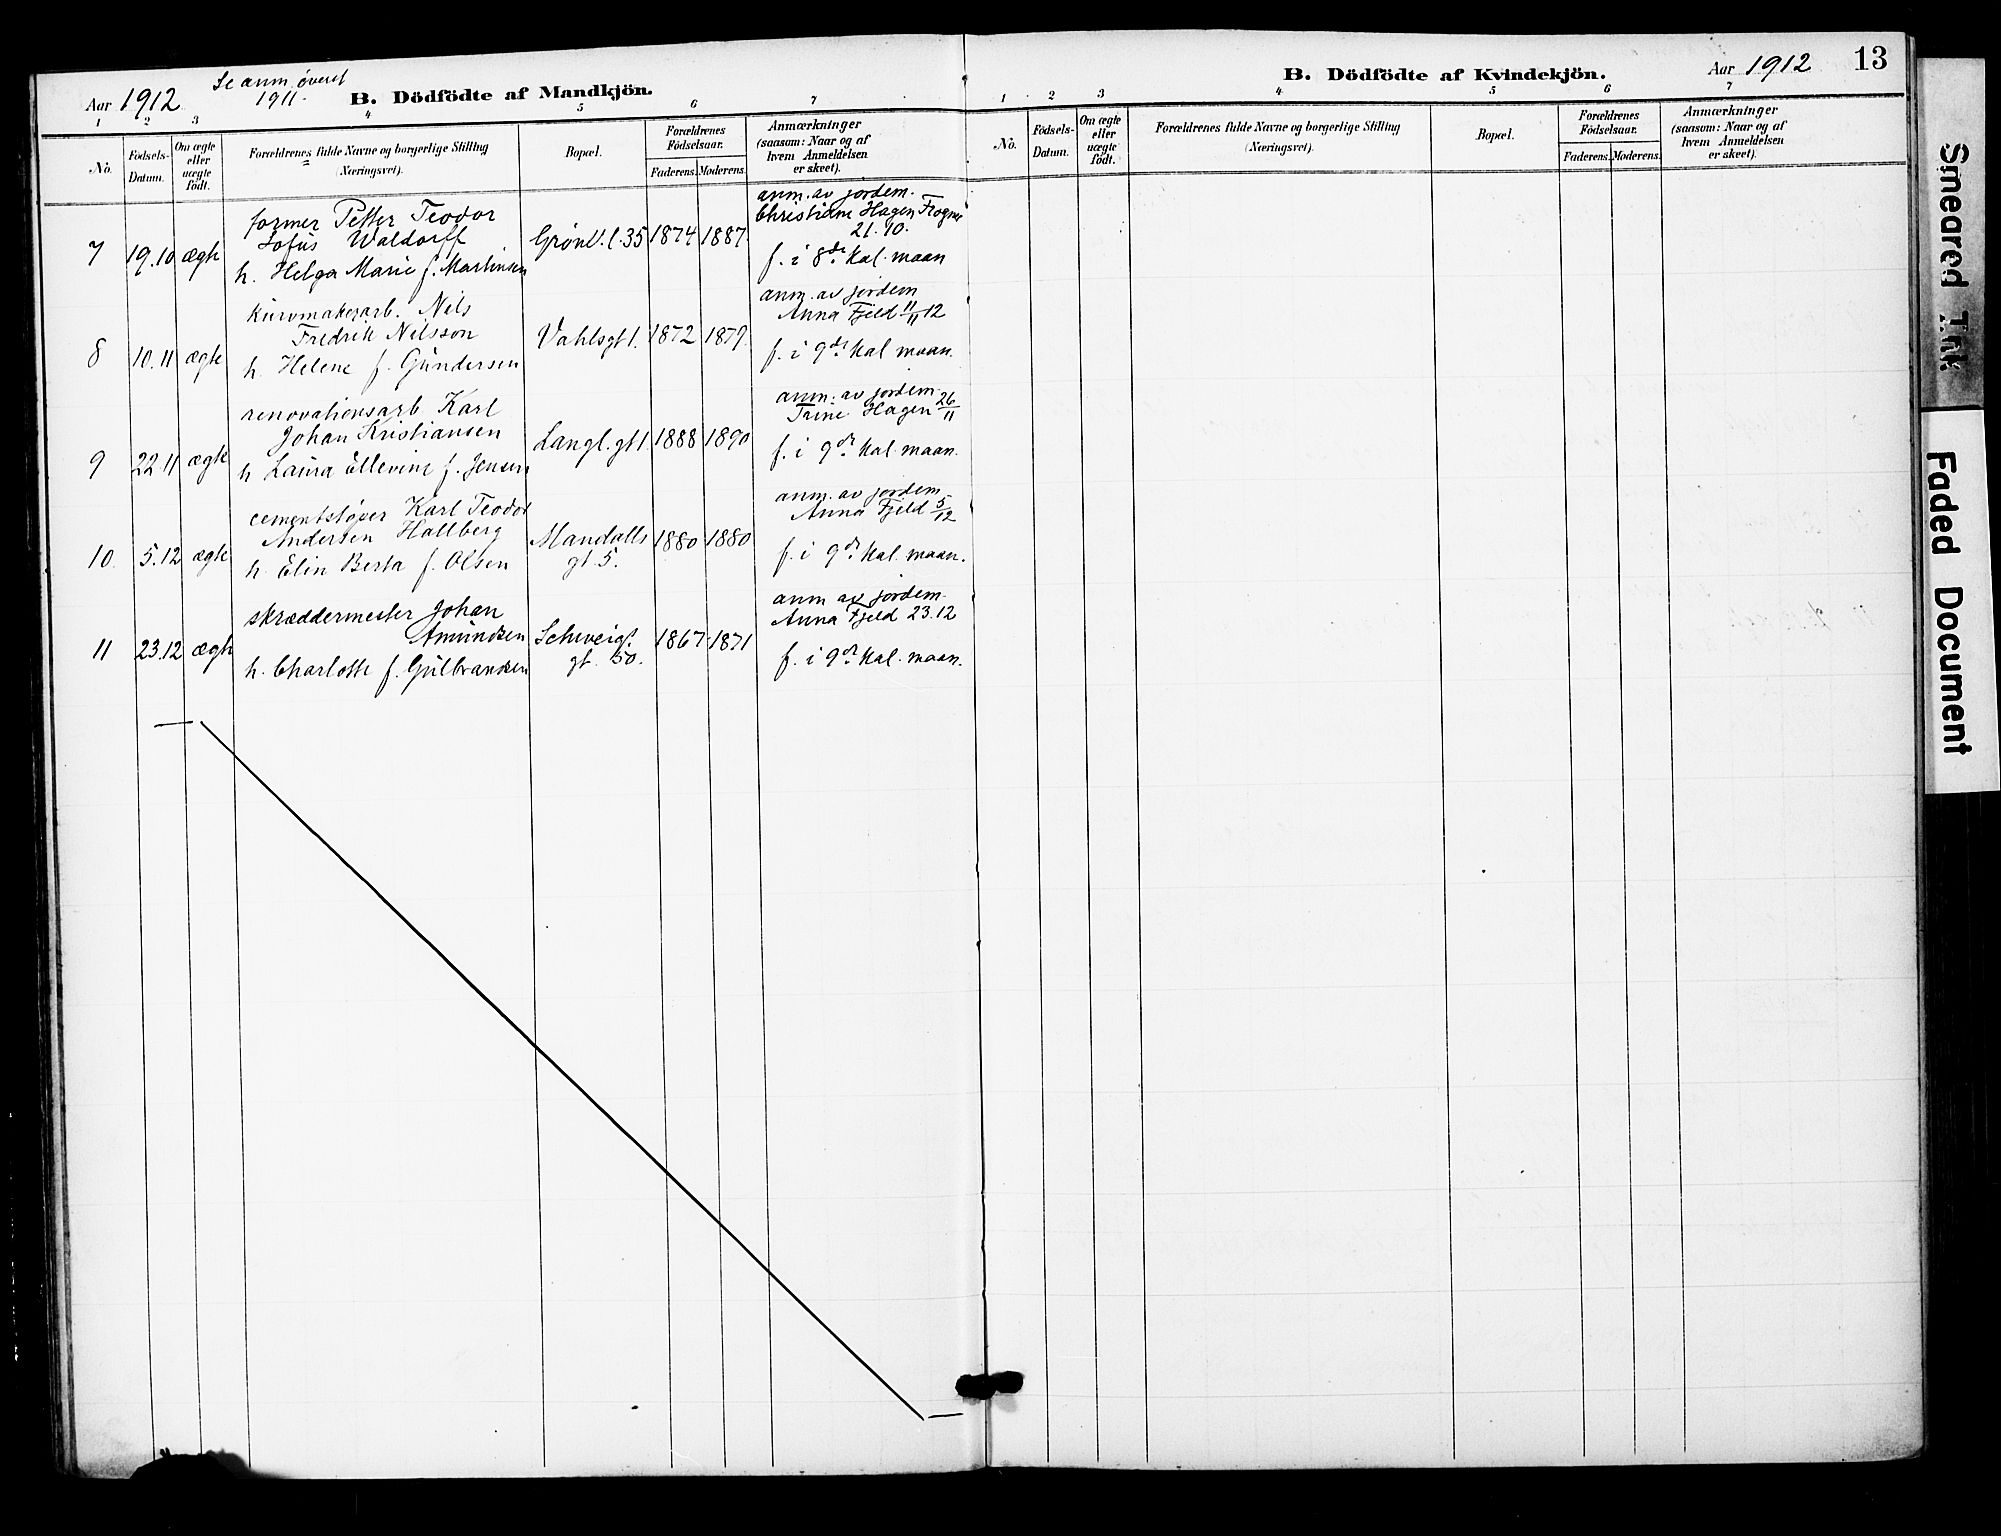 Aar 1912
Se anm. øverst
1911.
B. Dödfödte af Mandkjön.
1 2 3 4 5 6 7
No.
Födsels-
Datum.
Om ægte
eller
uægte
födt.
Forældrenes fulde Navne og borgerlige Stilling
(Næringsvei).
Bopæl.
Forældrenes
Födselsaar.
Faderens. Moderens.
Anmærkninger
(saasom: Naar og af
hvem Anmeldelsen
er skeet).
7 19.10 ægte
former Petter Teodor
Sofus Waldorff
h. Helga Marie f. Martinsen
Grønl. l. 35 1874 1887.
anm. av jordem.
Christiane Hagen Frogner
21.10.
f. i 8de kal. maan
8 10.11 ægte
kurvmakerarb. Nils
Fredrik Nilsson
h. Helene f. Gundersen
Vahlsgt 1. 1872 1879.
anm. av jordem
Anna Fjeld 11/11 12
f. i 9de kal maan.
9 22.11 ægte
renovationsarb Karl
Johan Kristiansen
h Laura Ellevine f. Jensen
Langl. gt 1. 1888 1890
anm. av jordem.
Trine Hagen 26/11
f. i 9de kal. maan.
10. 5.12 ægte
cementstøper Karl Teodor
Andersen Hallberg
h. Elin Berta f. Olsen
Mandalls
gt. 5.
1880 1880
anm. av jordem
Anna Fjeld 5/12
f. i 9de kal. maan.
11 23.12 ægte
skræddermester Johan
Amundsen
h. Charlotte f. Gulbrandsen
Schweigs.
gt. 50.
1867 1871
anm av jordem.
Anna Fjeld 23.12
f. i 9de kal. maan.
B. Dödfödte af Kvindekjön.
Aar 1912
13
1 2 3 4 5 6 7
No.
Födsels-
Datum.
Om ægte
eller
uægte
födt.
Forældrenes fulde Navne og borgerlige Stilling
(Næringsvei).
Bopæl.
Forældrenes
Födselsaar.
Faderens. Moderens.
Anmærkninger
(saasom: Naar og af
hvem Anmeldelsen
er skeet).
Smeared Ink
Faded Document